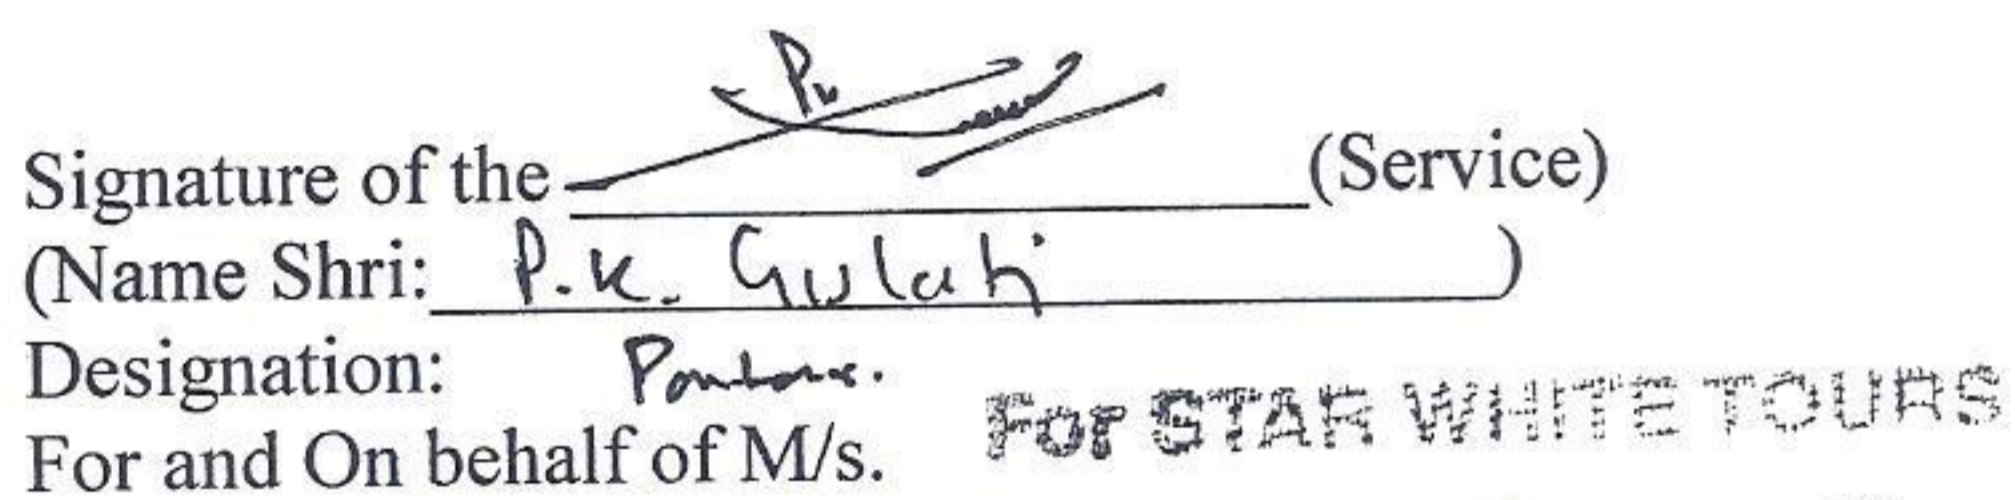 Signature of the (Service)
(Name Shri: P.K. Gulati )
Designation: Partner.
For and On behalf of M/s. For STAR WHITE TOURS